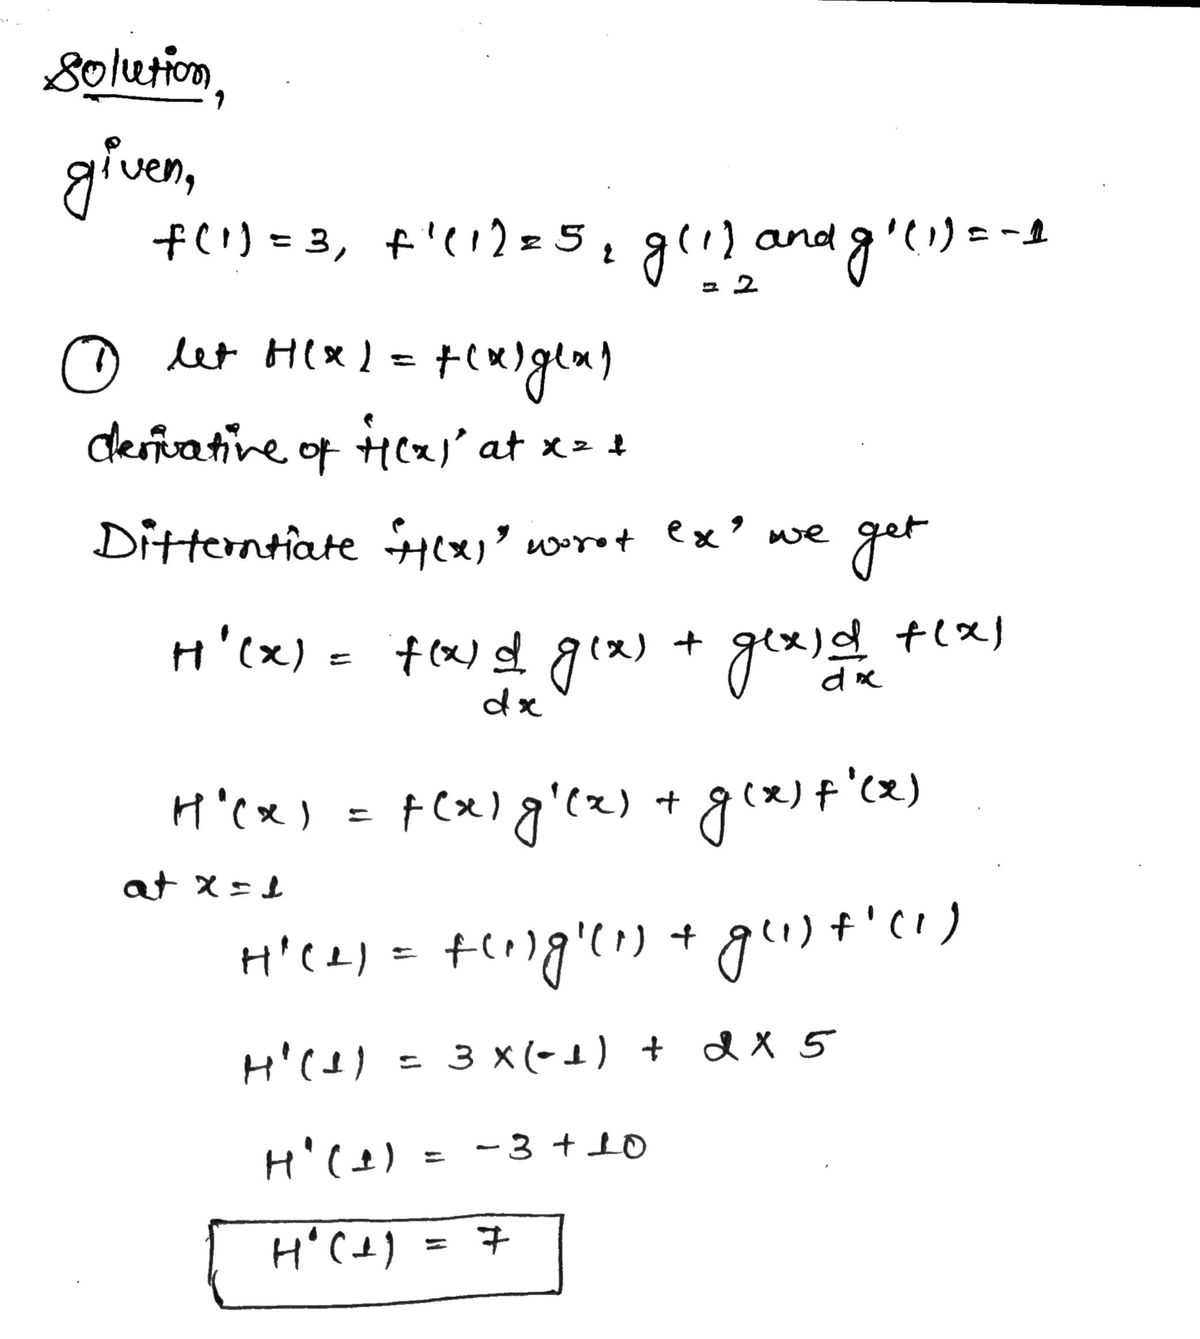 Solution,
given,
f(1) = 3, f'(1) = 5, g(1) and g'(1) = -1
= 2
① let H(x) = f(x)g(x)
derivative of 'H(x)' at x = 1
Differntiate 'H(x)' w.r.t 'x' we get
H'(x) = f(x) d/dx g(x) + g(x) d/dx f(x)
H'(x) = f(x) g'(x) + g(x) f'(x)
at x = 1
H'(1) = f(1)g'(1) + g(1) f'(1)
H'(1) = 3 × (-1) + 2 × 5
H'(1) = -3 + 10
H'(1) = 7